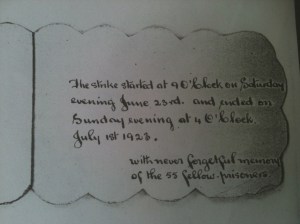 The strike started at 9 O'Clock on Saturday
evening June 23rd. and ended on
Sunday evening at 4 O'Clock.
July 1st 1923.
with never forgetful memory
of the 55 fellow-prisoners